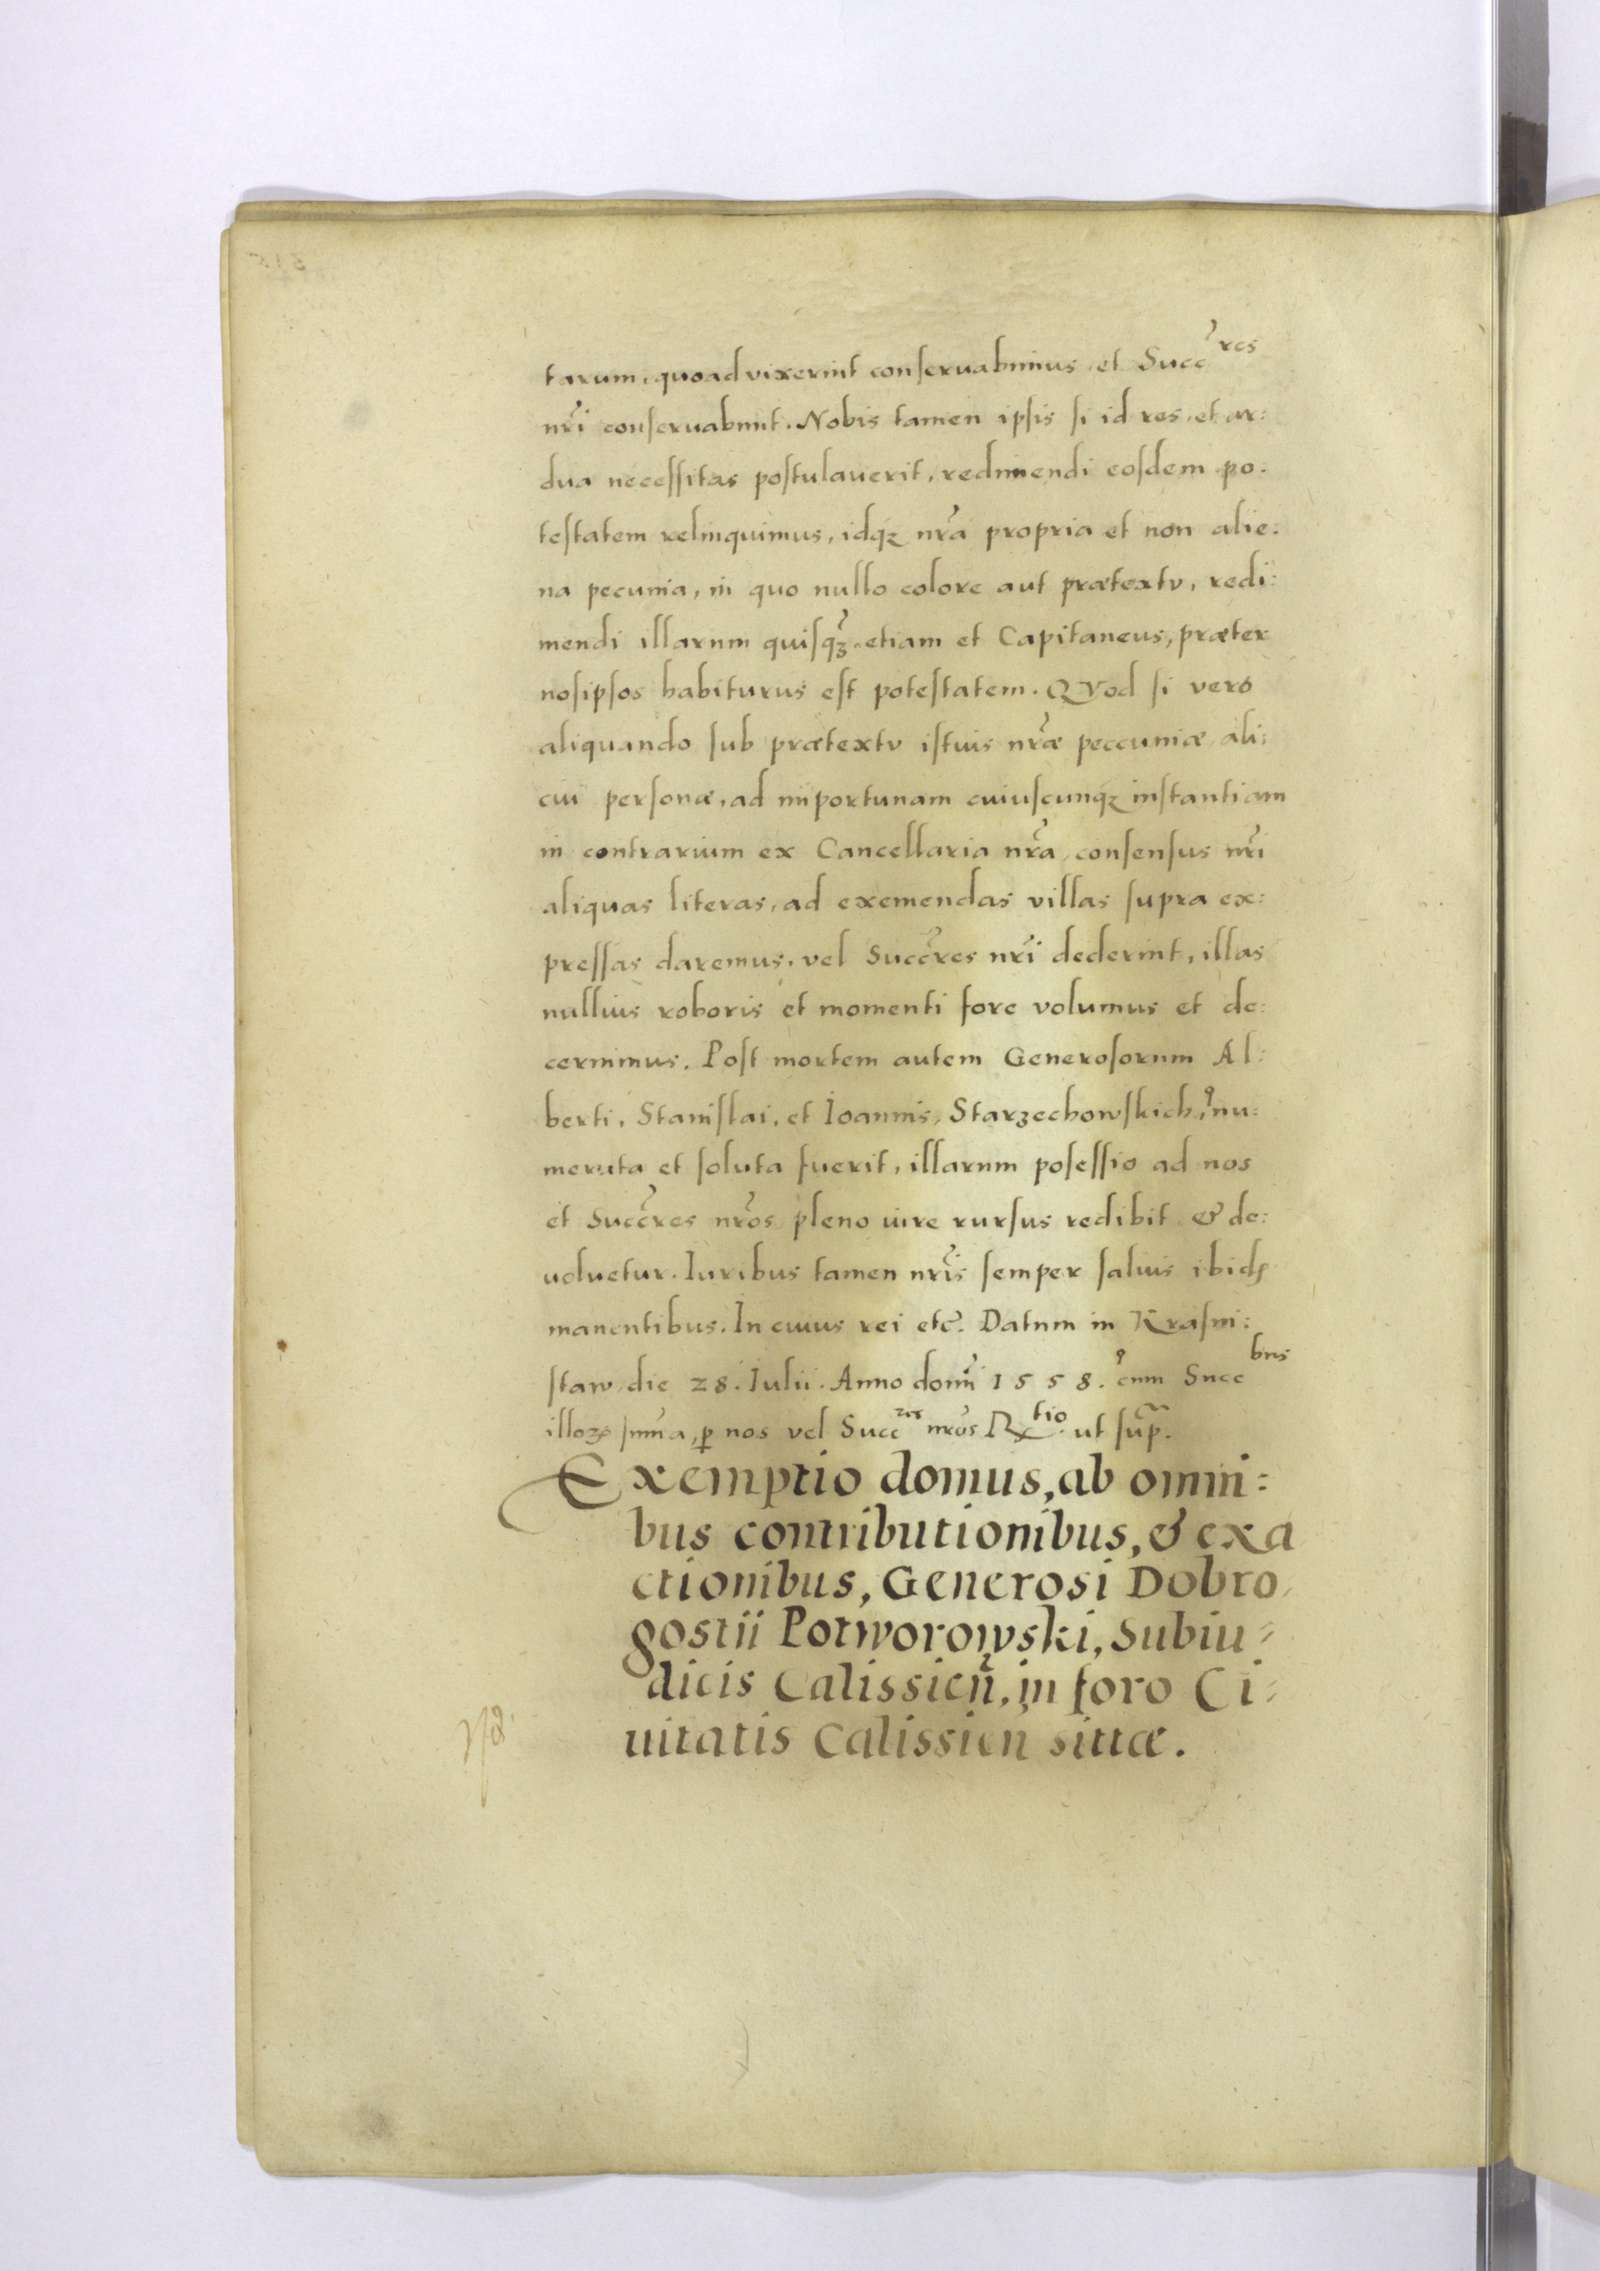 tarum, quoad vixerint conseruabimus, et Succ^res
nri conseruabunt. Nobis tamen ipsis si id res, et ar:
dua necessitas postulauerit, redimendi eosdem po:
testatem relinquimus, idq₃ nra propria et non alie:
na pecunia, in quo nullo colore aut prætextu, redi:
mendi illarum quisq₃ etiam et Capitaneus, præter
nosipsos habiturus est potestatem. QVod si vero
aliquando sub prætextu istius nræ peccuniæ ali:
cui personæ, ad importunam cuiuscunq₃ instantiam
in contrarium ex Cancellaria nra consensus nri
aliquas literas, ad exemendas villas supra ex:
pressas daremus, vel Succres nri dederint, illas
nullius roboris et momenti fore volumus et de:
cernimus. Post mortem autem Generosorum Al:
berti, Stanislai, et Ioannis, Starzechowskich, nu:
merata et soluta fuerit, illarum posessio ad nos
et Succres nros pleno iure rursus redibit & de:
uoluetur. Iuribus tamen nris semper saluis ibid
manentibus. In cuius rei etc. Datum in Krasni:
staw die 28. Iulii. Anno domi 1558. cum Succ^bus
illoꝝ suma, ꝑ nos vel Succ^res nros R^tio ut sup.
Exemptio domus, ab omni:
bus contributionibus, & exa
ctionibus, Generosi Dobro
gostii Potworowski, Subiu-
dicis Calissien, in foro Ci-
uitatis Calissien sittæ.